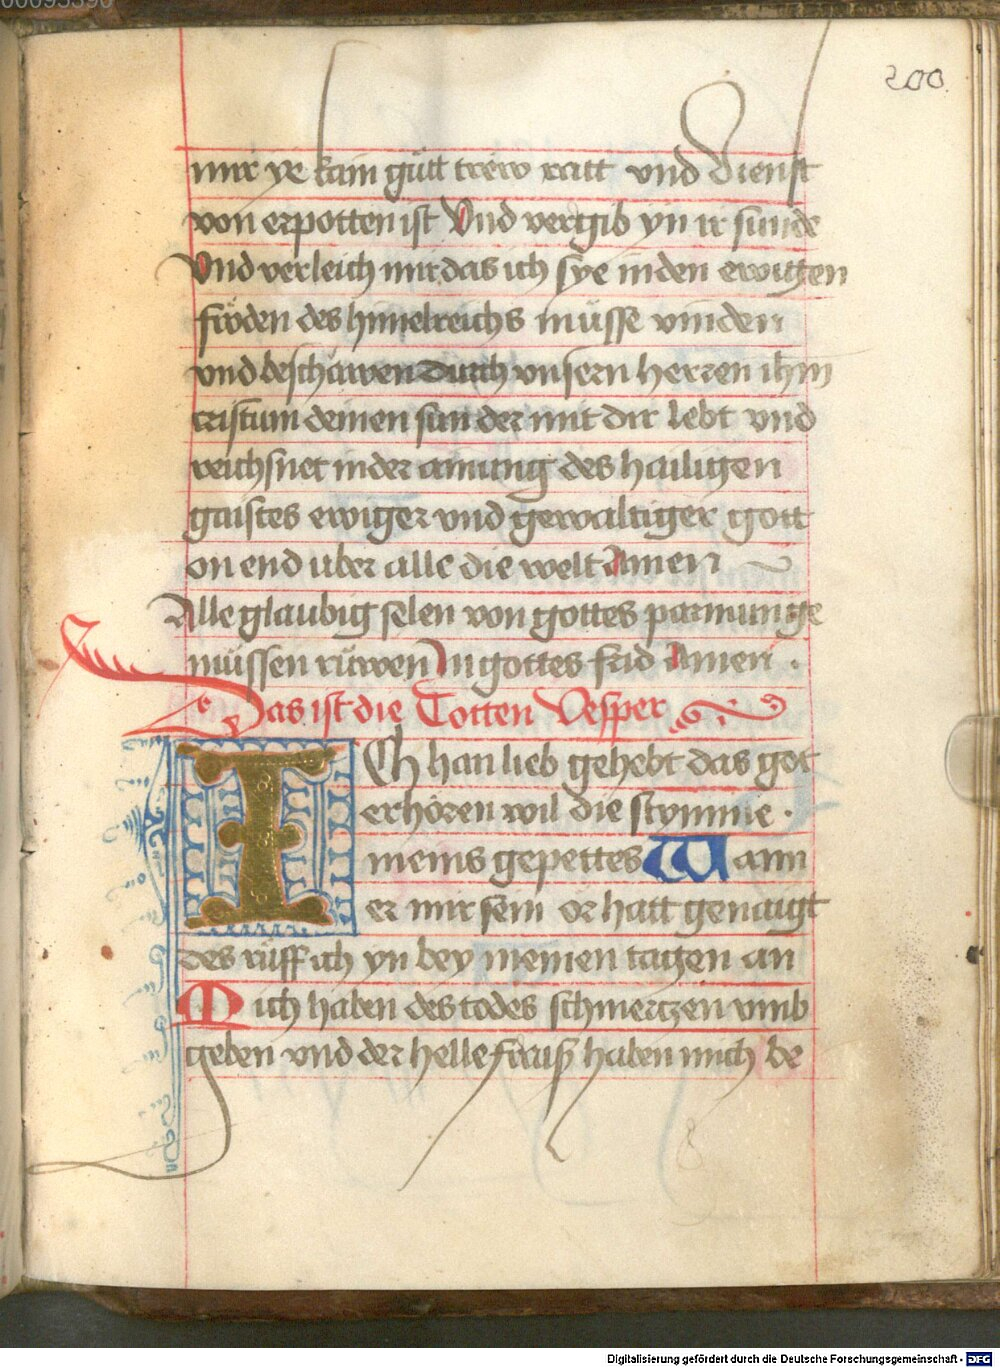 200
mir ye kain gütt trew ratt vnd dienst
von erpotten ist Vnd vergib yn ir sünde
Vnd verleich mir das ich sye in den ewigen
fröden des himelreichs müsse vinden
vnd beschawen durch vnsern herren ihm
cristum deinen sun der mit dir lebt vnd
reichsnet in der ainung des hailigen
gaistes ewiger vnd gewaltiger gott
on end uber alle die welt Amen
Alle glaubig selen von gottes parmunge
müssen rüwen In gottes frid Amen .
Das ist die Totten Vesper
ICh han lieb gehebt das got
erhören wil die stymme .
meins gepettes Wann
er mir sein or hatt genaigt
des rüff ich yn bey meinen tagen an
Mich haben des todes schmertzen vmb
geben vnd der helle fraiß haben mich be
Digitalisierung gefördert durch die Deutsche Forschungsgemeinschaft - DFG